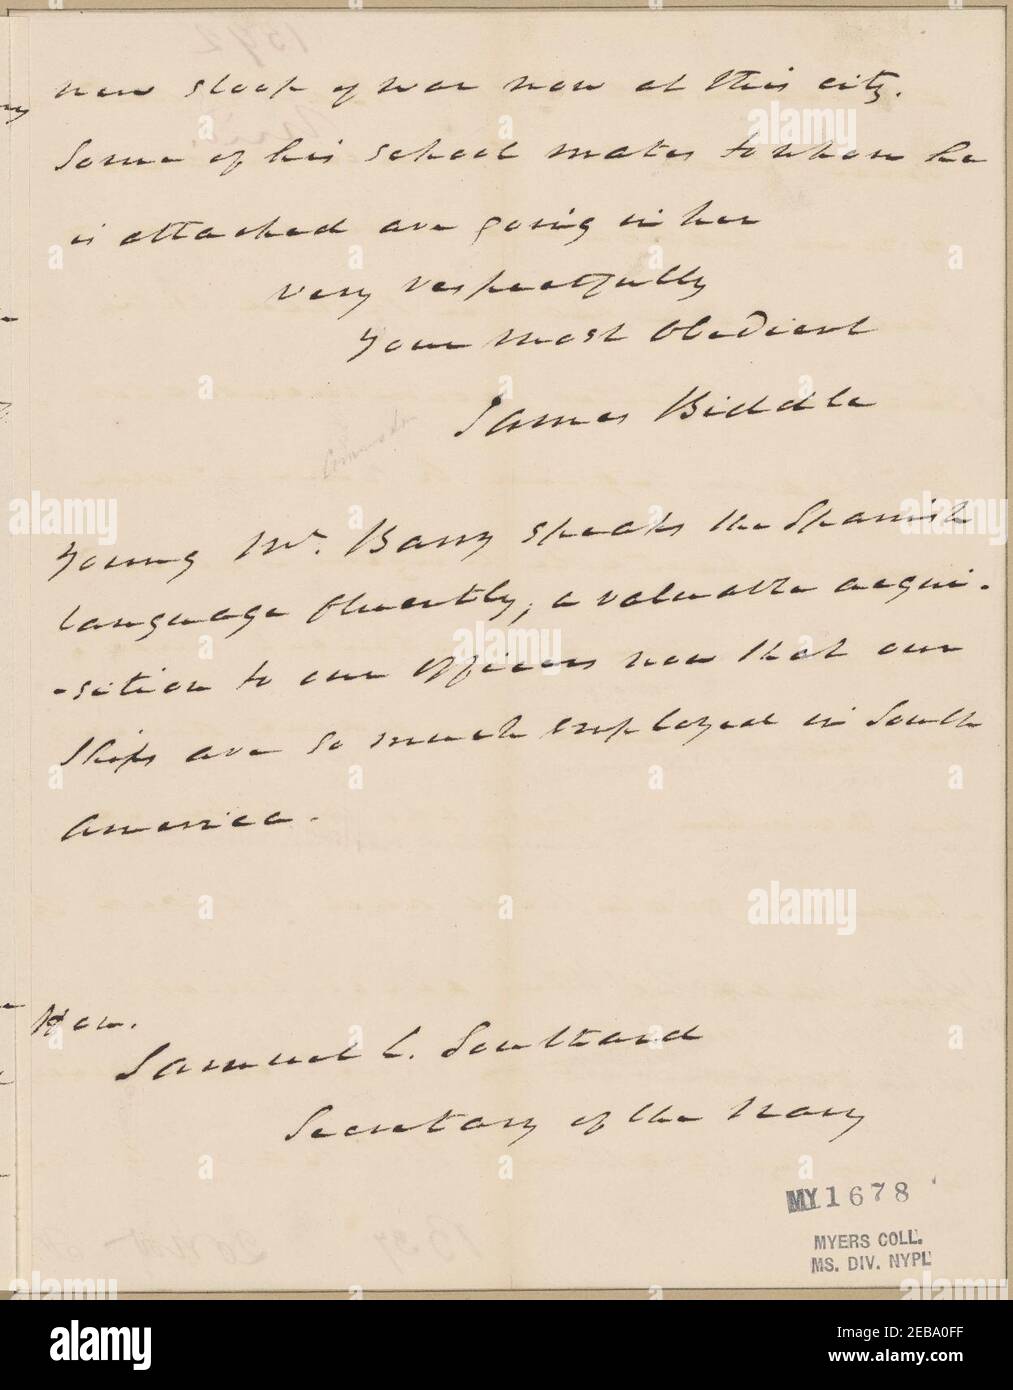 new sloop of war now at this city.
Some of his school mates to whom he
is attached are going in her
very respectfully
Your most Obedient
James Biddle
Young Mr. Barry speaks the Spanish
language fluently, a valuable acqui-
-sition to our Officers now that our
Ships are so much employed in South
America.
Hon.
Samuel L. Southard
Secretary of the Navy
MY1678
MYERS COLL.
MS. DIV. NYPL
alamy
Image ID: 2EBA0FF
www.alamy.com